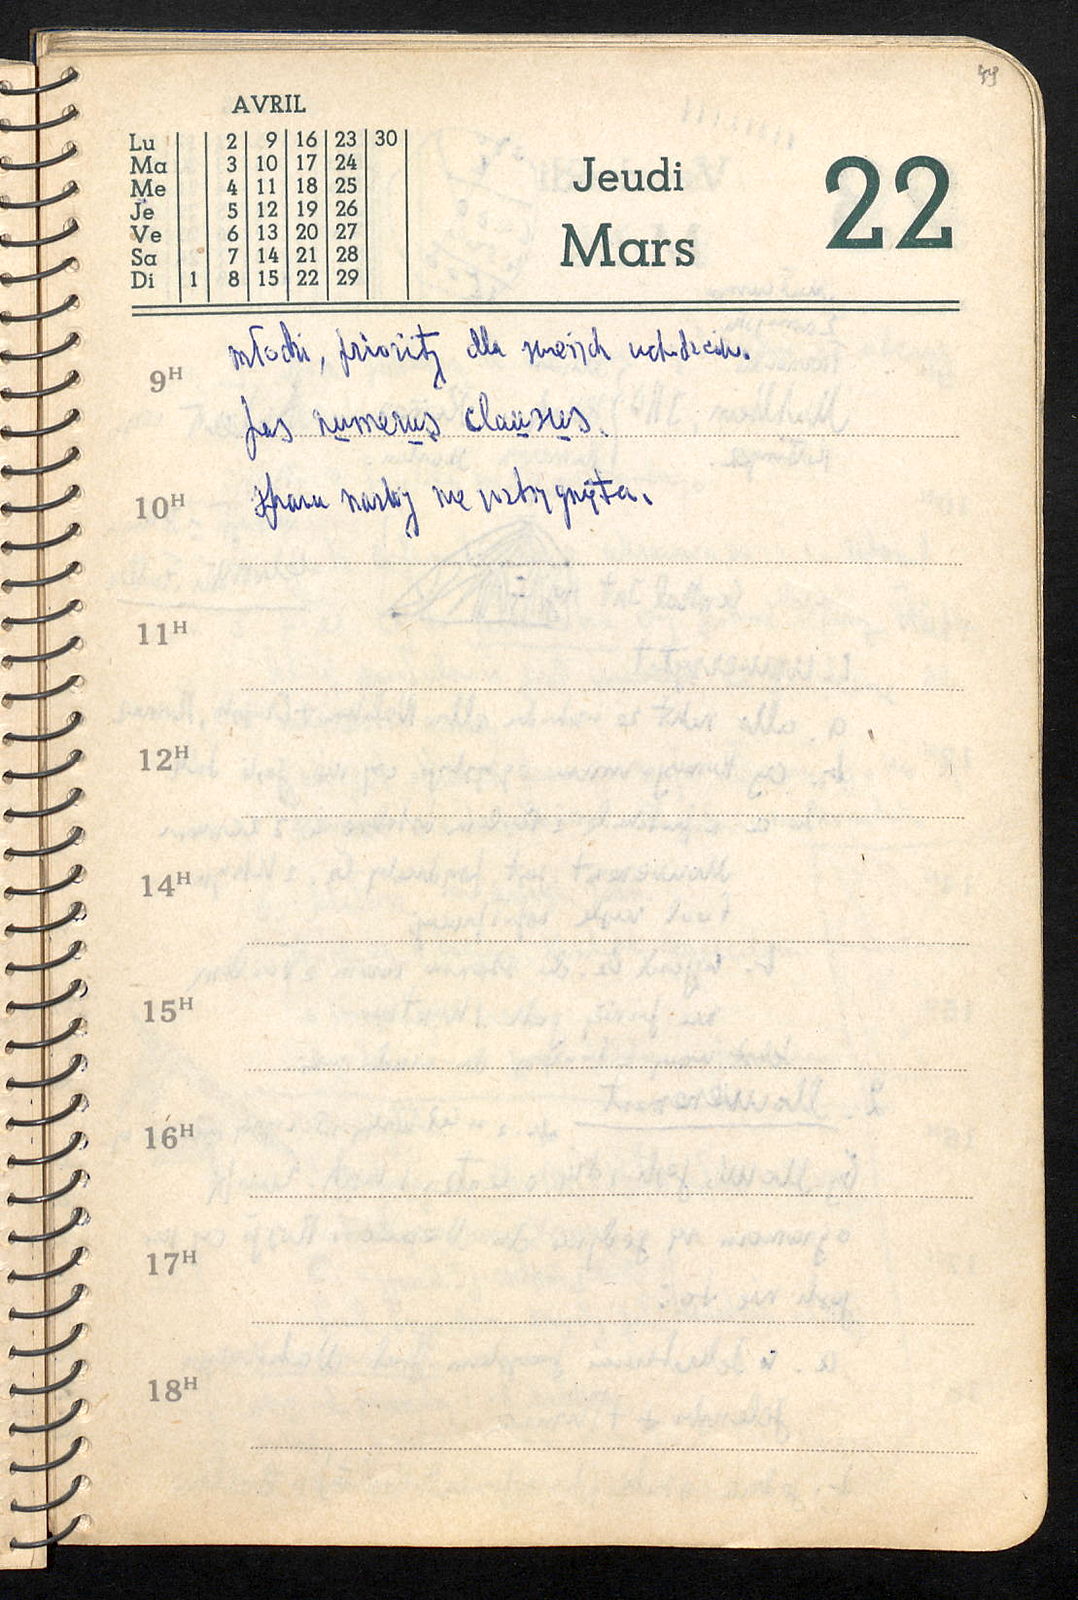 49
AVRIL
Lu 2 9 16 23 30
Ma 3 10 17 24
Me 4 11 18 25
Je 5 12 19 26
Ve 6 13 20 27
Sa 7 14 21 28
Di 1 8 15 22 29
Jeudi
Mars
22
młodzi, priority dla
9H
pas numerus clausus.
10H
sprawa nie rozstrzygnięta.
11H
12H
14H
15H
16H
17H
18H